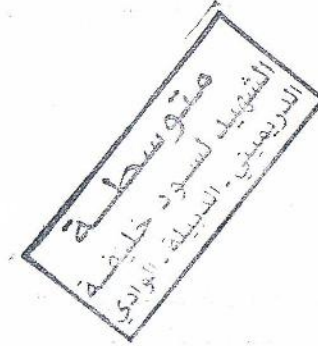 متوسطة
الشهيد لسود خليفة
الدريميني - الدبيلة - الوادي